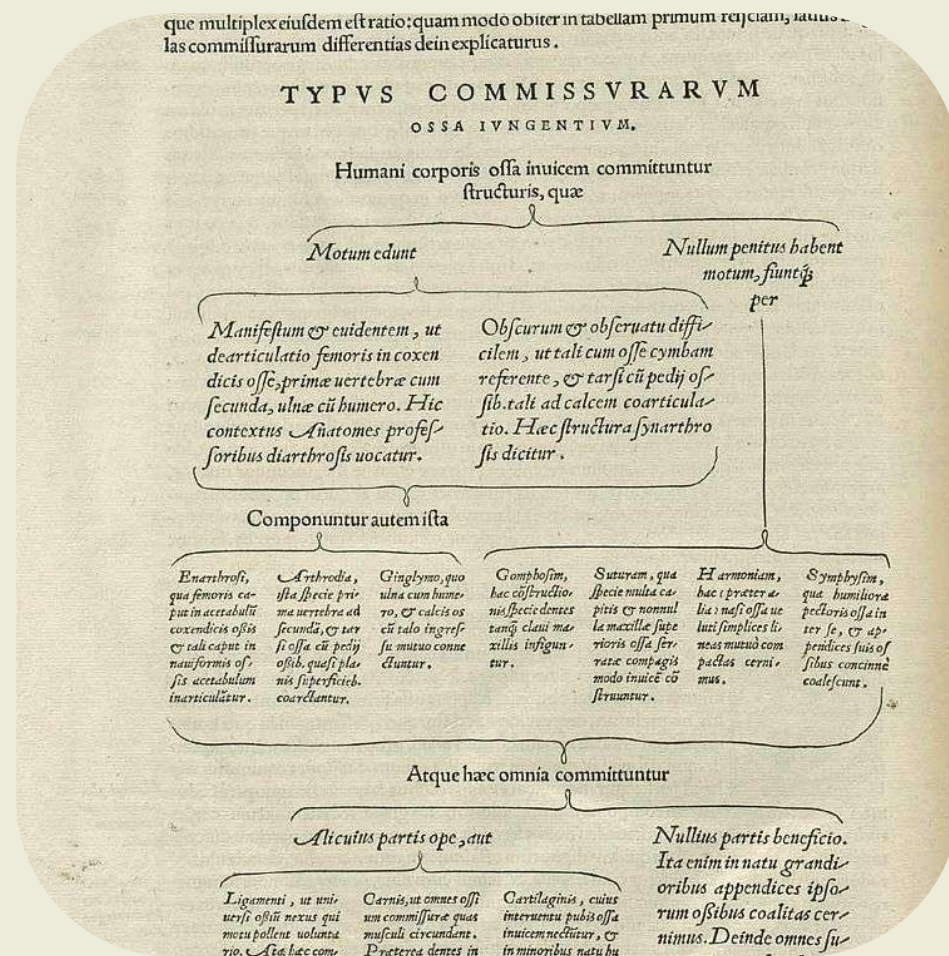 que multiplex eiusdem est ratio: quam modo obiter in tabellam primum reijciam,
las commissurarum differentias dein explicaturus.
TYPVS COMMISSVRARVM
OSSA IVNGENTIVM.
Humani corporis ossa inuicem committuntur
structuris, quæ
Motum edunt
Nullum penitus habent
motum, fiuntq́;
per
Manifestum & euidentem, ut
dearticulatio femoris in coxen
dicis osse, primæ uertebræ cum
secunda, ulnæ cũ humero. Hic
contextus Anatomes profes-
soribus diarthrosis uocatur.
Obscurum & obseruatu diffi-
cilem, ut tali cum osse cymbam
referente, & tarsi cũ pedij os-
sib. tali ad calcem coarticula-
tio. Hæc structura synarthro
sis dicitur.
Componuntur autem ista
Enarthrosi,
qua femoris ca-
put in acetabulũ
coxendicis oßis
& tali caput in
nauiformis os-
sis acetabulum
inarticulãtur.
Arthrodia,
ista specie pri-
ma uertebra ad
secundã, & tar
si ossa cũ pedij
oßib. quasi pla-
nis superficieb.
coarctantur.
Ginglymo, quo
ulna cum hume-
ro, & calcis os
cũ talo ingres-
su mutuo conne
ctuntur.
Gomphosim,
hac cõstructio-
nis specie dentes
tanq̃ claui ma-
xillis infigun-
tur.
Suturam, qua
specie multa ca-
pitis & nonnul
la maxillæ supe
rioris ossa ser-
ratæ compagis
modo inuicẽ cõ
struuntur.
Harmoniam,
hac præter a-
lia: nasi ossa ue
luti simplices li-
neas mutuò com
pactas cerni-
mus.
Symphysim,
qua humiliora
pectoris ossa in
ter se, & ap-
pendices suis os
sibus concinnè
coalescunt.
Atque hæc omnia committuntur
Alicuius partis ope, aut
Nullius partis beneficio.
Ita enim in natu grandi-
oribus appendices ipso-
rum oßibus coalitas cer-
nimus. Deinde omnes su-
Ligamenti, ut uni-
uersi oßiũ nexus qui
motu pollent uolunta
rio. Ita hæc com-
Carnis, ut omnes oßi
um commissuræ quas
musculi circundant.
Præterea dentes in
Cartilaginis, cuius
interuentu pubis ossa
inuicem nectũtur, &
in minoribus natu hu